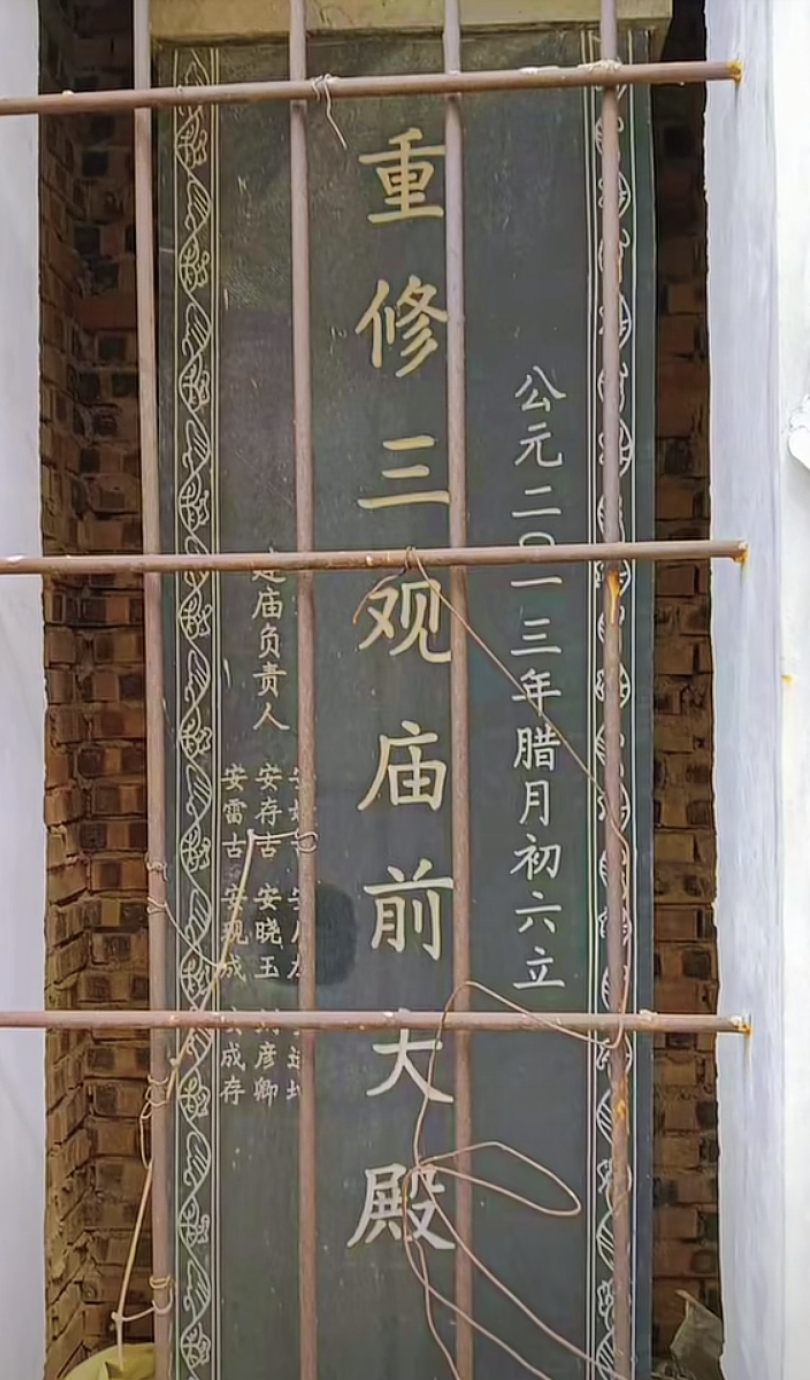 公元二〇一三年腊月初六立
重修三观庙前大殿
建庙负责人
安存古 安晓玉 彦卿
安雷古 安现成 成存